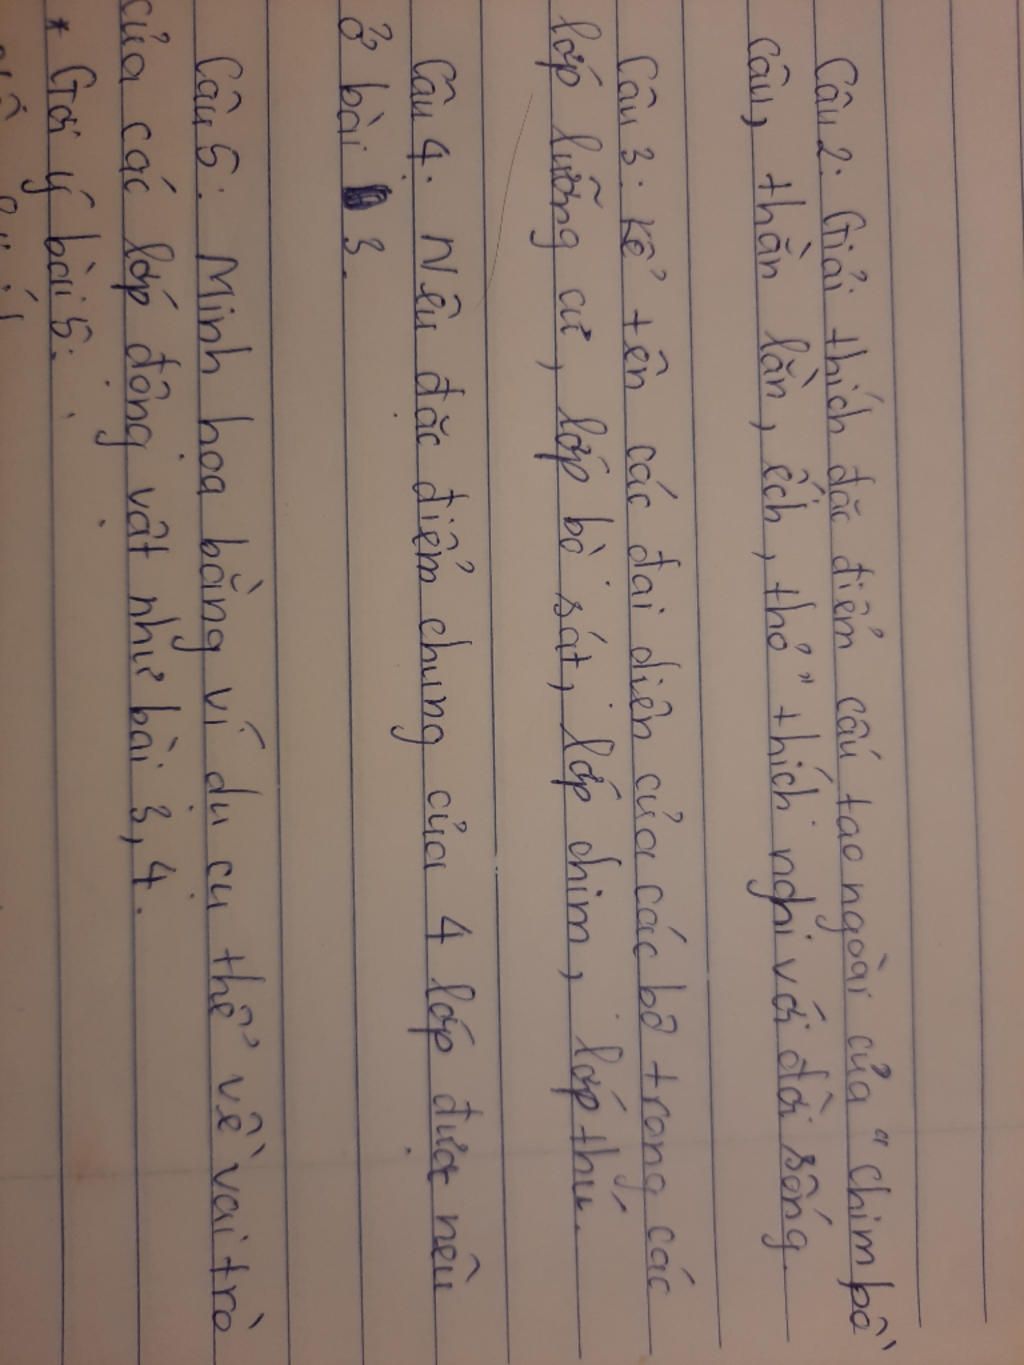 Câu 2. Giải thích đặc điểm cấu tạo ngoài của "chim bồ
câu, thằn lằn, ếch, thỏ" thích nghi với đời sống.
Câu 3. Kể tên các đại diện của các bộ trong các
lớp lưỡng cư, lớp bò sát, lớp chim, lớp thú.
Câu 4. Nêu đặc điểm chung của 4 lớp được nêu
ở bài 3.
Câu 5: Minh họa bằng ví dụ cụ thể về vai trò
của các lớp động vật như bài 3, 4.
* Gợi ý bài 5: